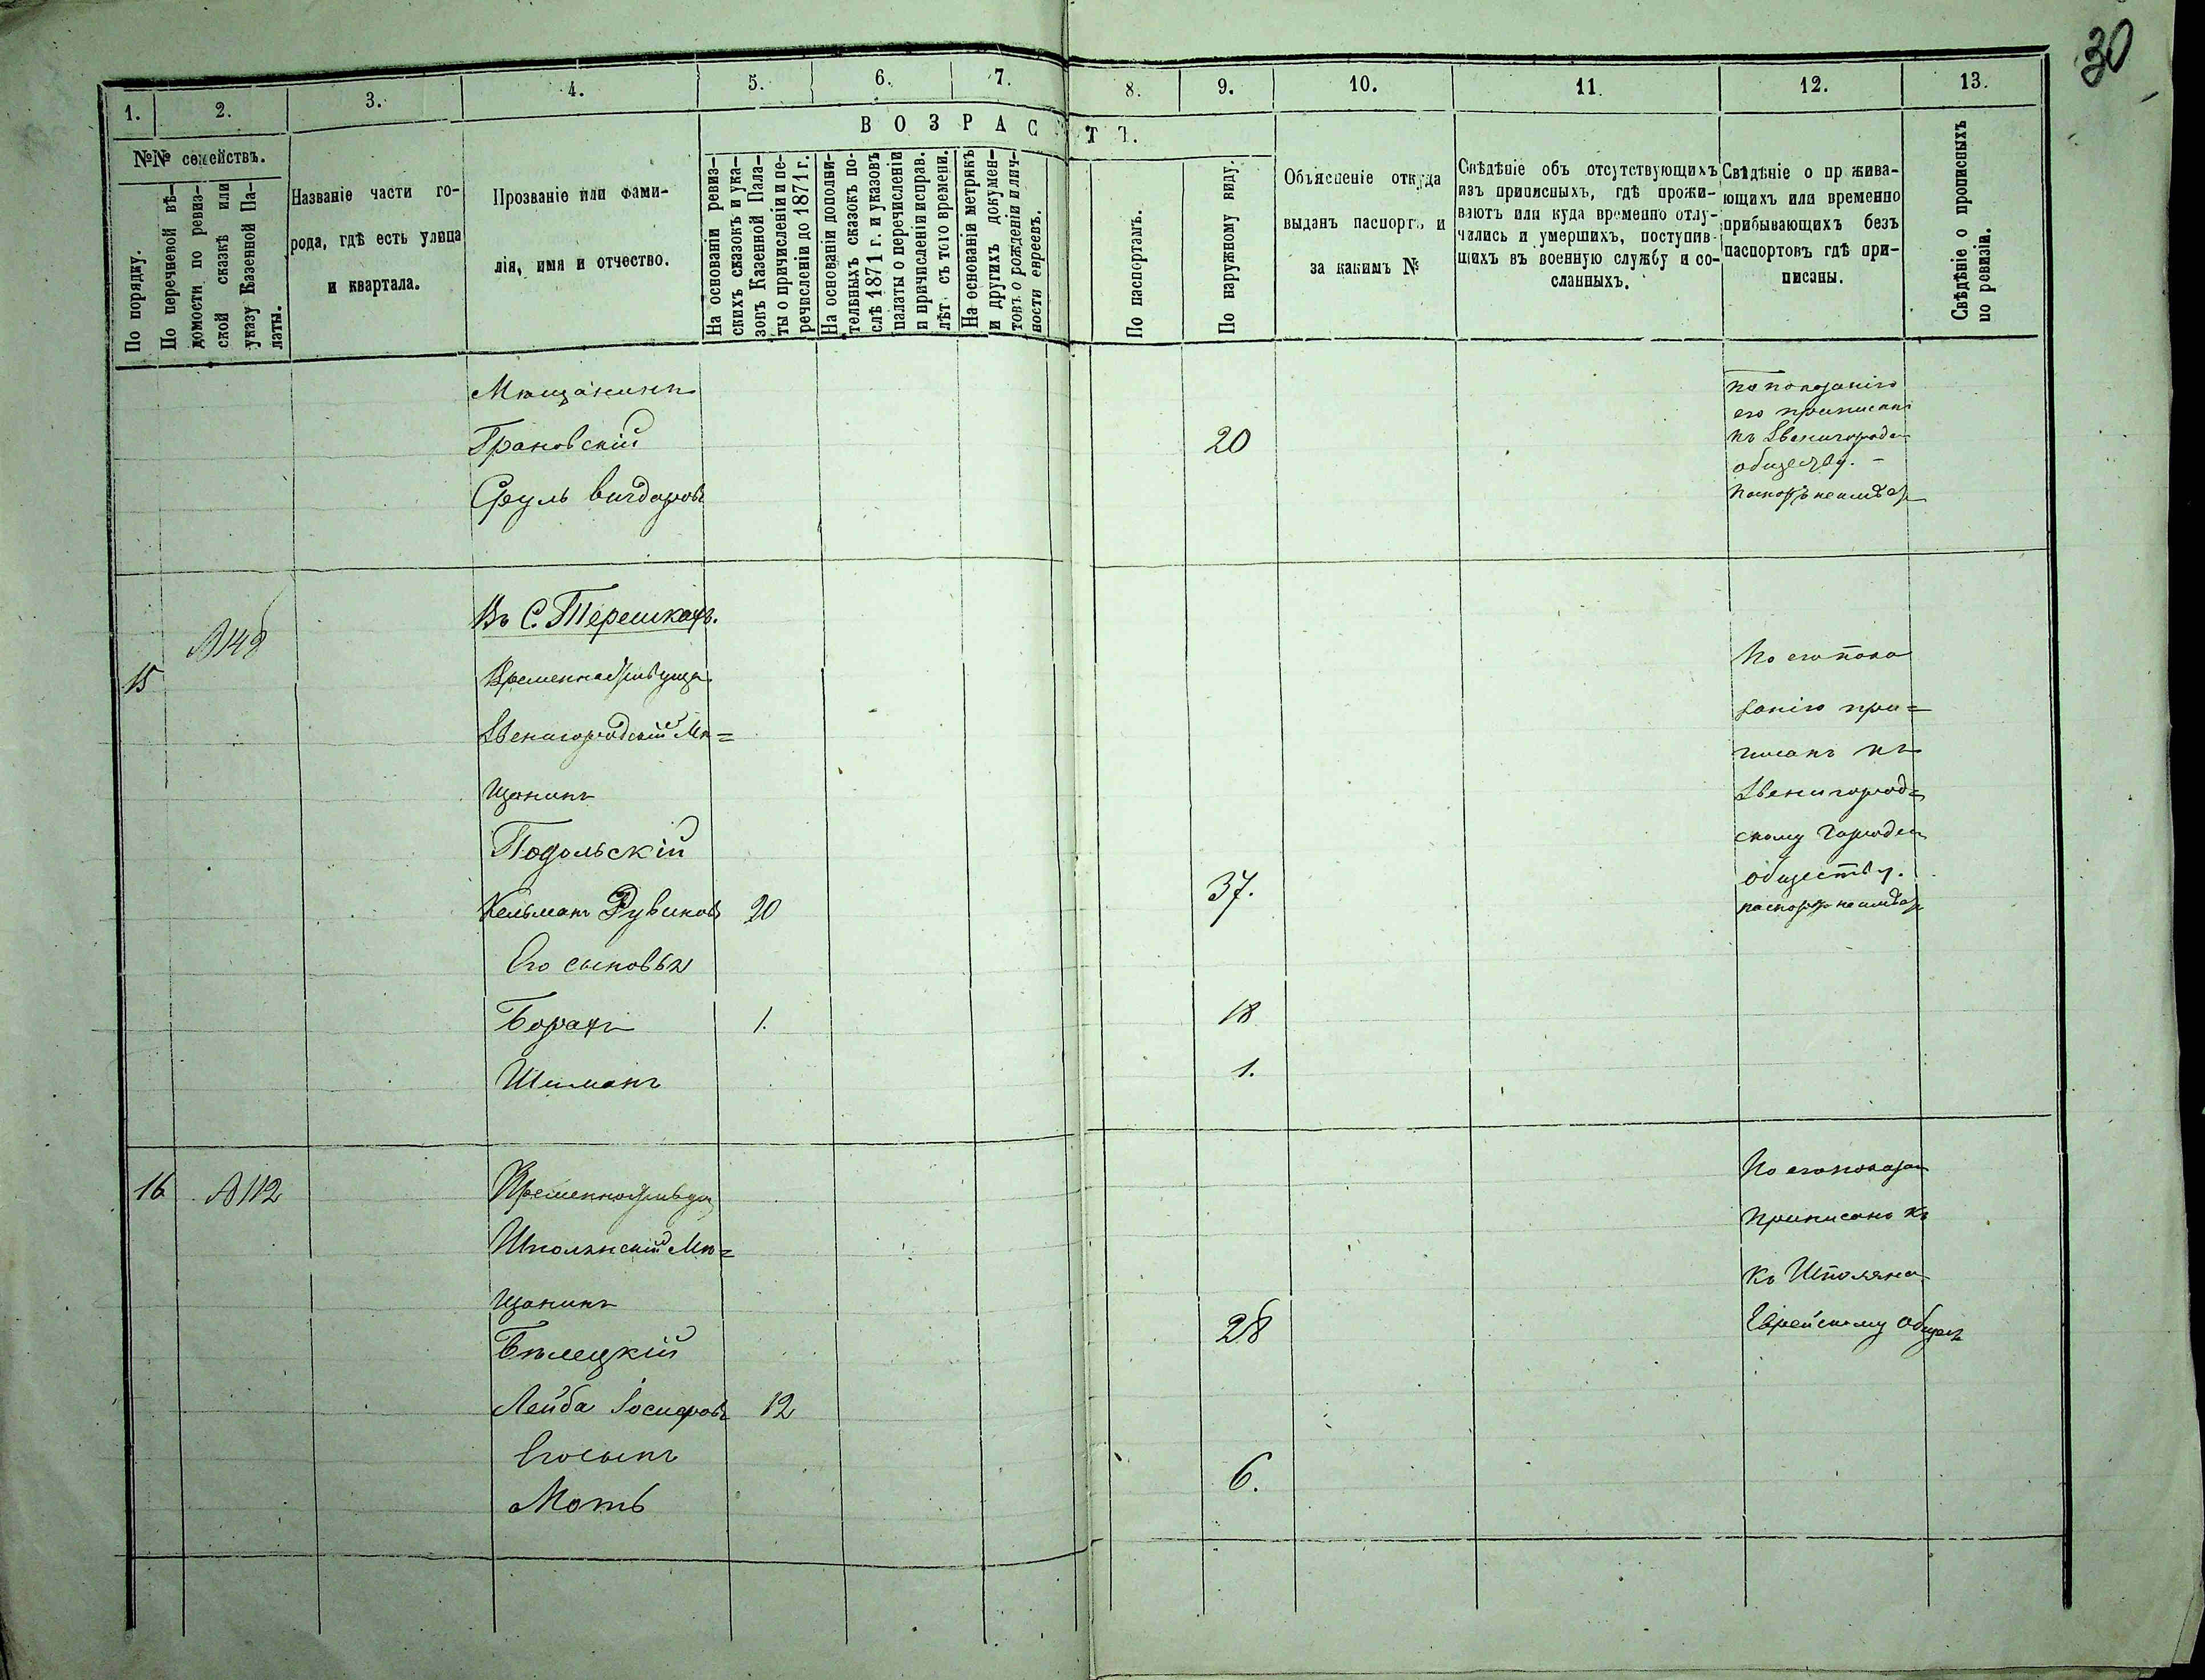 30
1.
2.
3.
4.
5.
6.
7.
8.
9.
10.
11.
12.
13.
№№ семействъ.
По порядку.
По перечневой вѣ-
домости по ревиз-
ской сказкѣ или
указу Казенной Па-
латы.
Названіе части го-
рода, гдѣ есть улица
и квартала.
Прозваніе или фами-
лія, имя и отчество.
ВОЗРАСТЪ.
На основаніи ревиз-
скихъ сказокъ и ука-
зовъ Казенной Пала-
ты о причисленіи и пе-
речисленіи до 1871 г.
На основаніи дополни-
тельныхъ сказокъ по-
слѣ 1871 г. и указовъ
палаты о перечисленіи
и причисленіи исправ.
лѣт съ того времени.
На основаніи метрикъ
и другихъ докумен-
товъ о рожденіи и лич-
ности евреевъ.
По паспортамъ.
По наружному виду.
Объясненіе откуда
выданъ паспортъ и
за какимъ №
Свѣдѣніе объ отсутствующихъ
изъ приписныхъ, гдѣ прожи-
ваютъ или куда временно отлу-
чились и умершихъ, поступив-
шихъ въ военную службу и со-
сланныхъ.
Свѣдѣніе о пр жива-
ющихъ или временно
прибывающихъ безъ
паспортовъ гдѣ при-
писаны.
Свѣдѣніе о прописныхъ
по ревизіи.
Мѣщанинъ
Грановскій
Сруль Вигдоровъ
20
по показанію
его приписанъ
къ Звенигородск
обществу. -
Въ С. Терешкахъ.
15
№ 148
Звенигородскій Мѣ=
щанинъ
Подольскій
Кельманъ Рувиновъ 20
37.
Его сыновья
Борахъ 1.
18
Шиманъ
1.
По его пока
занію при=
писанъ къ
Звенигород=
скому Городск
обществу.
16
№ 112
Шполянскій Мѣ=
щанинъ
Бѣлецкій
28
Лейба Іосифовъ 12
Его сынъ
Моть
6.
По его показан
Приписанъ къ
Къ Шполянс
Еврейскому Общес